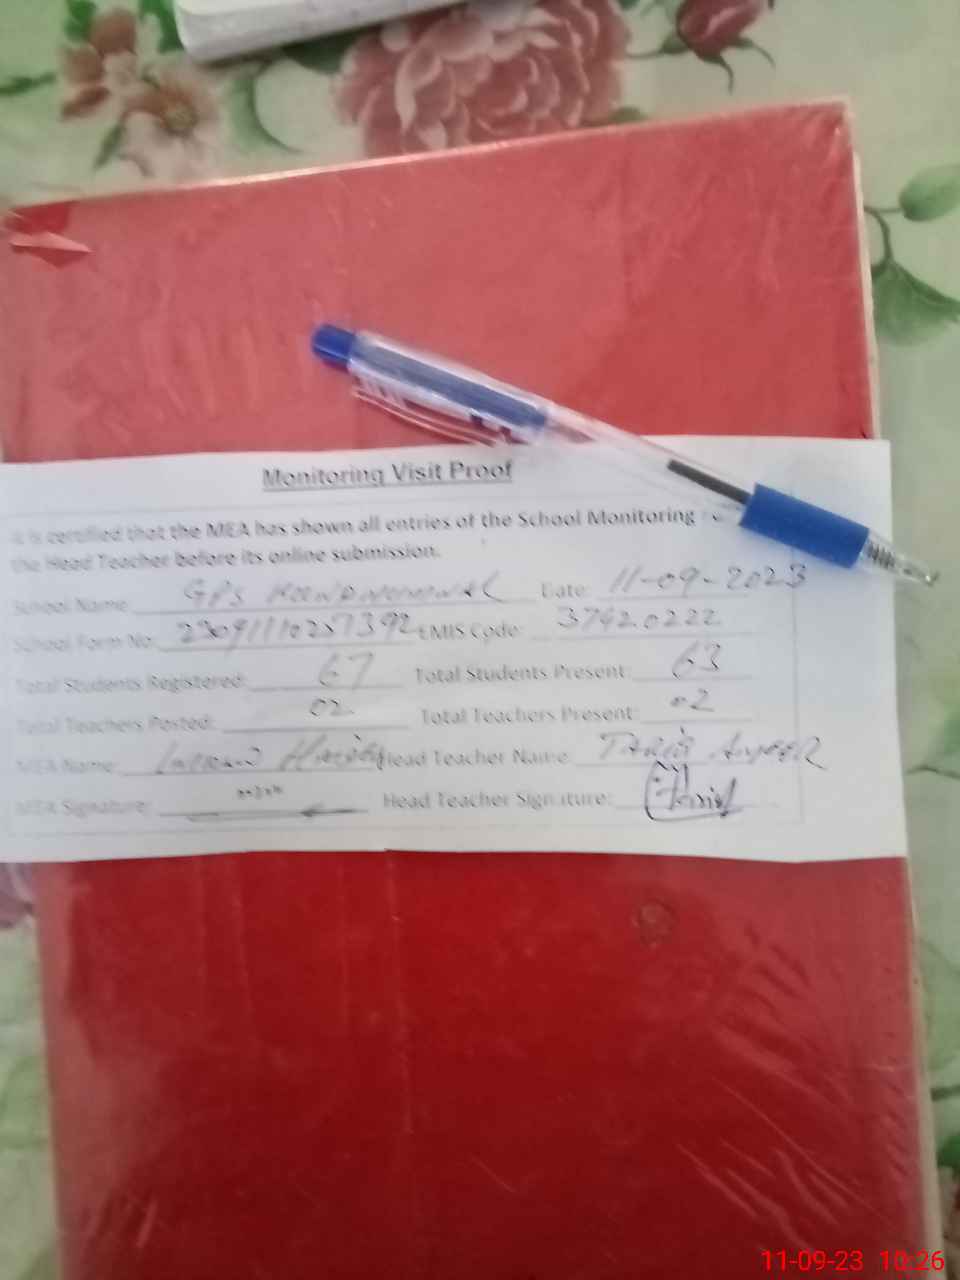 Monitoring Visit Proof
It is certified that the MEA has shown all entries of the School Monitoring
the Head Teacher before its online submission.
School Name: GPS Date: 11-09-2023
School Form No: EMIS Code: 37420222
Total Students Registered: 67 Total Students Present: 63
Total Teachers Posted: 02 Total Teachers Present: 02
MEA Name: Head Teacher Name: TARIQ
MEA Signature: Head Teacher Signature: Tariq
11-09-23 10:26